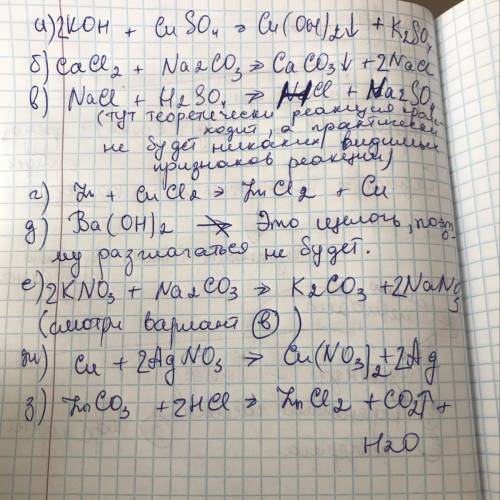 а) 2KOH + CuSO₄ → Cu(OH)₂↓ + K₂SO₄
б) CaCl₂ + Na₂CO₃ → CaCO₃↓ + 2NaCl
в) NaCl + H₂SO₄ → HCl + Na₂SO₄
(тут теоретически реакция
ходит, а практически
не будет никаких видимых
признаков реакции)
г) Zn + CuCl₂ → ZnCl₂ + Cu
д) Ba(OH)₂ ↛ Это щелочь, поэто-
му разлагаться не будет.
е) 2KNO₃ + Na₂CO₃ → K₂CO₃ + 2NaNO₃
(смотри вариант в)
ж) Cu + 2AgNO₃ → Cu(NO₃)₂ + 2Ag
з) ZnCO₃ + 2HCl → ZnCl₂ + CO₂↑ +
H₂O